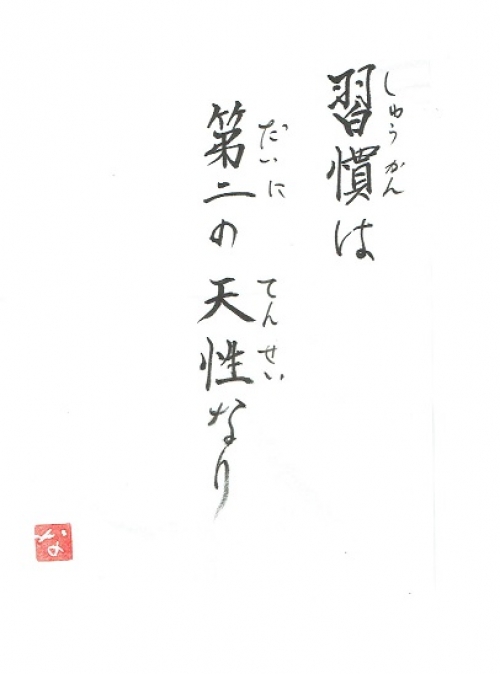 習慣は
しゅうかん
第二の天性なり
だいに
てんせい